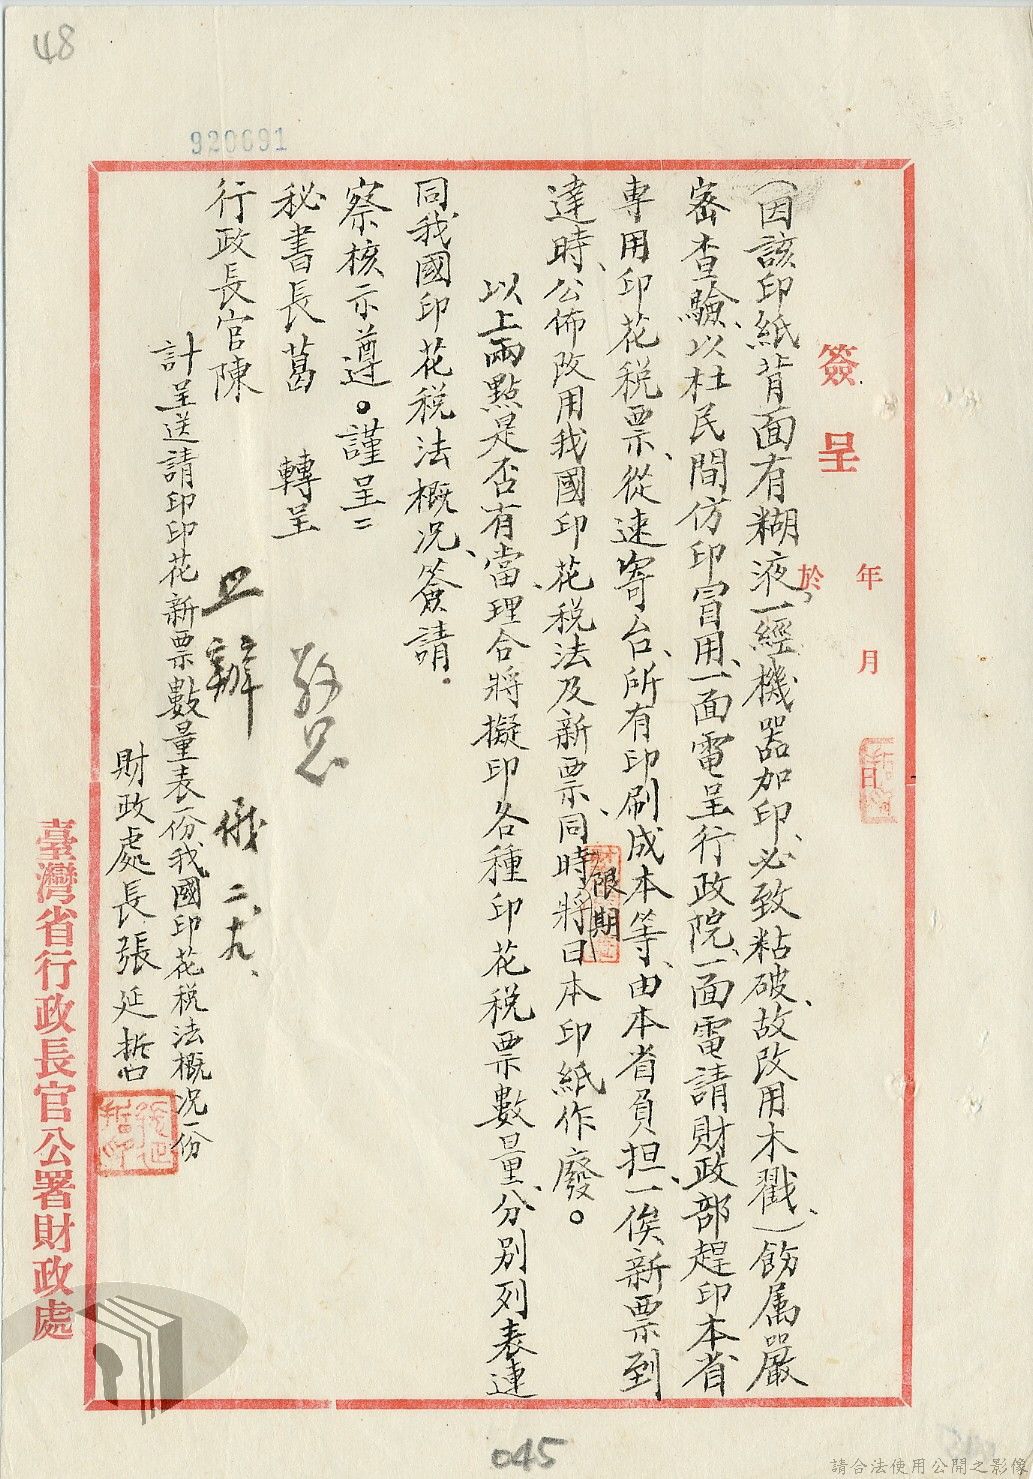 48
920691
簽呈
年 月 日
於
(因該印紙背面有糊液,一經機器加印、必致粘破、故改用木戳、)飭属嚴
密查驗、以杜民間仿印冒用、一面電呈行政院、一面電請財政部趕印本省
專用印花税票、從速寄台、所有印刷成本等、由本省負担、一俟新票到
達時、公佈改用我國印花税法及新票、同時將日本印紙限期作廢。
以上兩點是否有當、理合將擬印各種印花税票數量、分别列表連
同我國印花税法概况、簽請.
察核示遵。謹呈=
秘書長葛 轉呈
行政長官陳
照辦 儀 二、十九、
計呈送請印印花新票數量表一份我國印花税法概况一份
財政處長張延哲
臺灣省行政長官公署財政處
045
請合法使用公開之影像